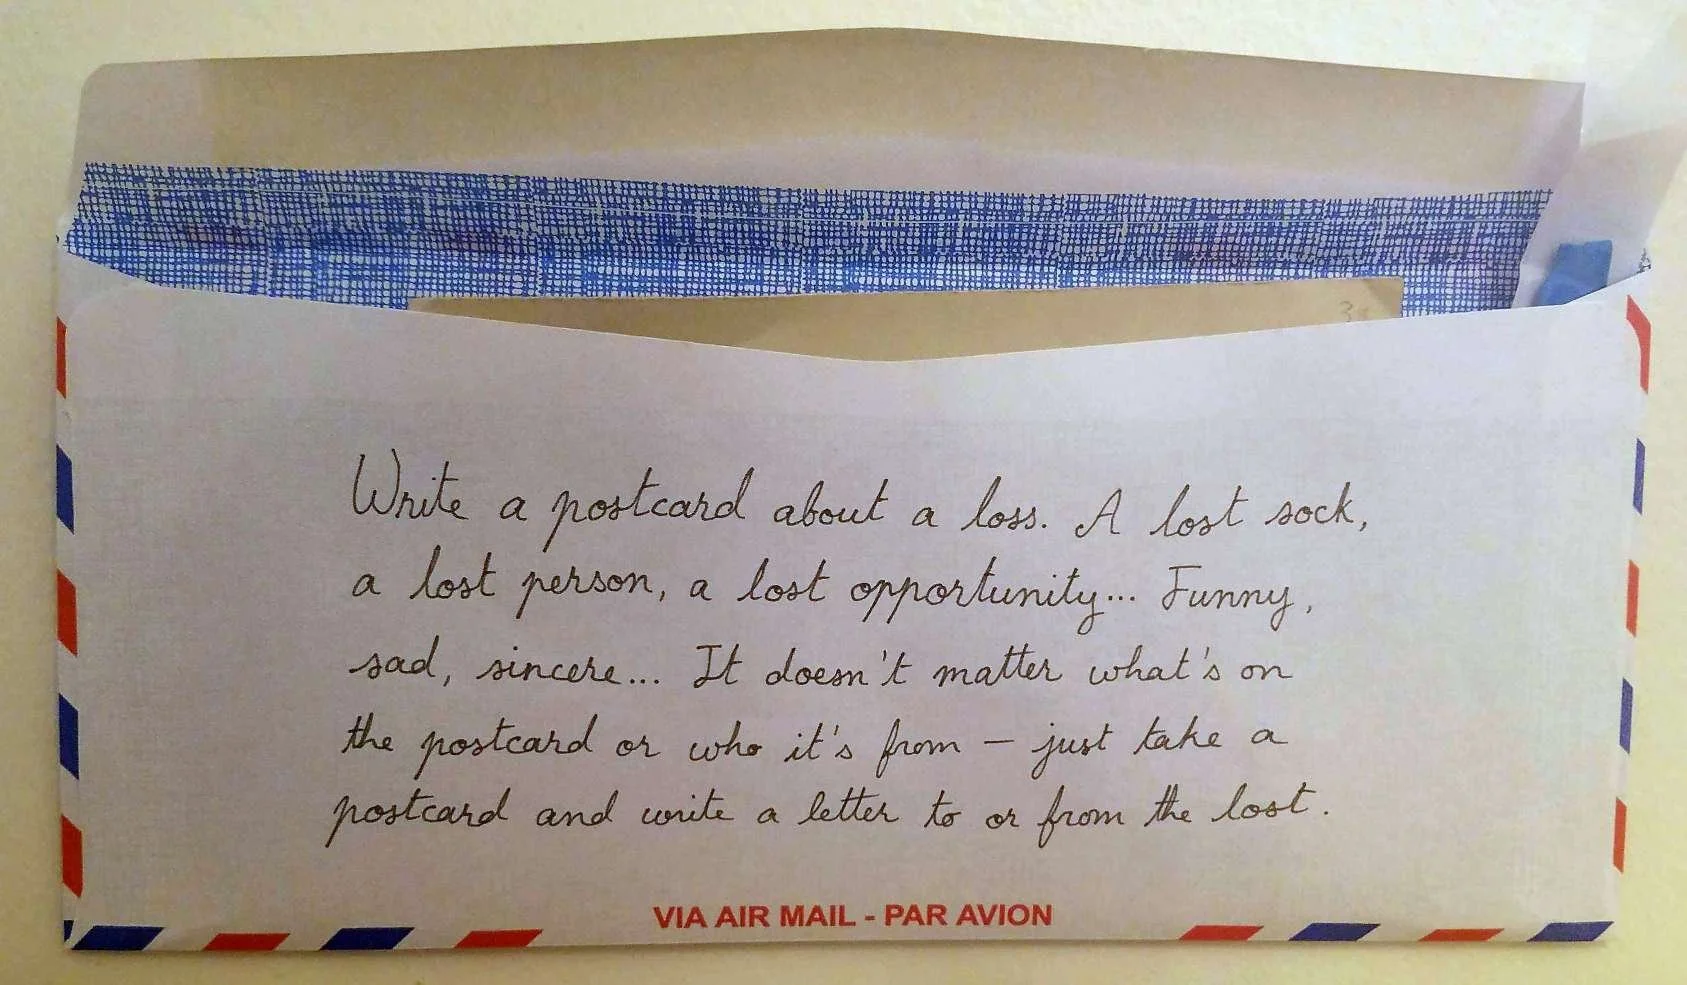 Write a postcard about a loss. A lost sock,
a lost person, a lost opportunity... Funny,
sad, sincere... It doesn't matter what's on
the postcard or who it's from – just take a
postcard and write a letter to or from the lost.
VIA AIR MAIL - PAR AVION